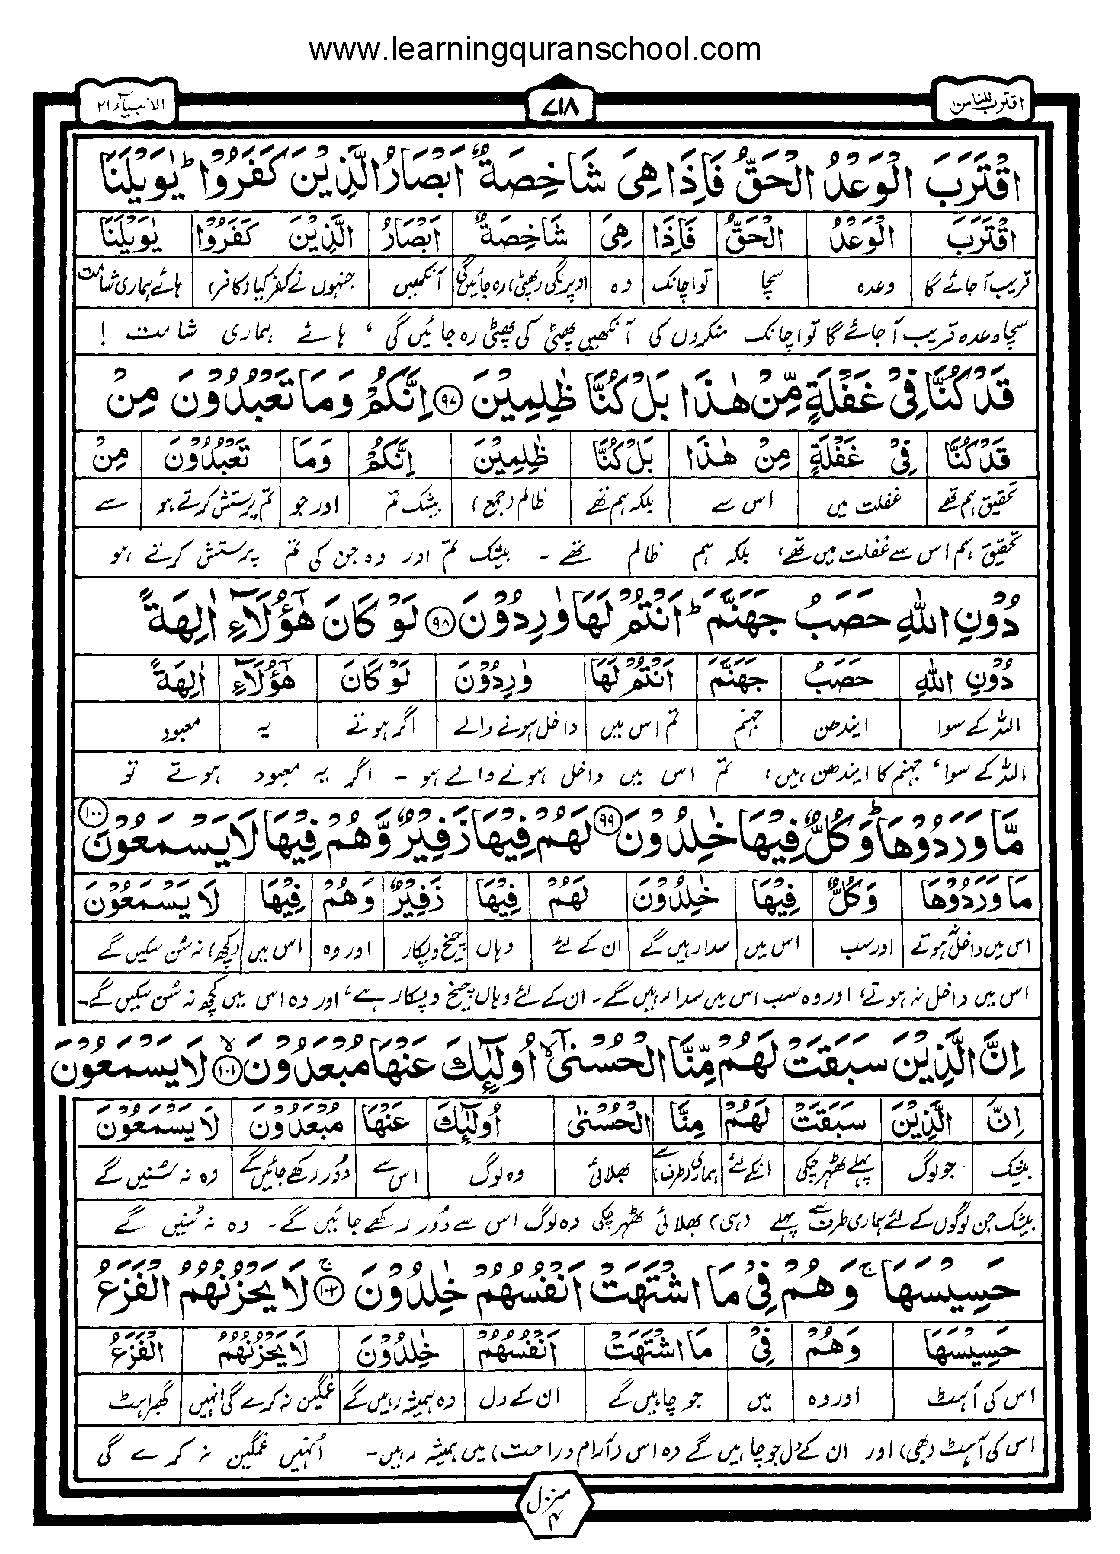 www.learningquranschool.com
اقترب للناس۱۷ ۷۱۸ الانبیآء ۲۱
اقْتَرَبَ الْوَعْدُ الْحَقُّ فَاِذَا هِیَ شَاخِصَةٌ اَبْصَارُ الَّذِیْنَ کَفَرُوْا ؕ یٰوَیْلَنَا
اقْتَرَبَ الْوَعْدُ الْحَقُّ فَاِذَا هِیَ شَاخِصَةٌ اَبْصَارُ الَّذِیْنَ کَفَرُوْا یٰوَیْلَنَا
قریب آجائے گا وعدہ سچا تو اچانک وہ اوپر لگی (پھٹی) رہ جائیں گی آنکھیں جنہوں نے کفر کیا (کافر) ہائے ہماری شامت
سچا وعدہ قریب آجائے گا تو اچانک منکروں کی آنکھیں پھٹی کی پھٹی رہ جائیں گی ، ہائے ہماری شامت !
قَدْ کُنَّا فِیْ غَفْلَةٍ مِّنْ هٰذَا بَلْ کُنَّا ظٰلِمِیْنَ ۹۷ اِنَّکُمْ وَمَا تَعْبُدُوْنَ مِنْ
قَدْ کُنَّا فِیْ غَفْلَةٍ مِنْ هٰذَا بَلْ کُنَّا ظٰلِمِیْنَ اِنَّکُمْ وَمَا تَعْبُدُوْنَ مِنْ
تحقیق ہم تھے غفلت میں اس سے بلکہ ہم تھے ظالم (جمع) بیشک تم اور جو تم پرستش کرتے ہو سے
تحقیق ہم اس سے غفلت میں تھے، بلکہ ہم ظالم تھے ۔ بیشک تم اور وہ جن کی تم پرستش کرتے ہو
دُوْنِ اللّٰهِ حَصَبُ جَهَنَّمَ ؕ اَنْتُمْ لَهَا وٰرِدُوْنَ ۹۸ لَوْ کَانَ هٰۤؤُلَآءِ اٰلِهَةً
دُوْنِ اللّٰهِ حَصَبُ جَهَنَّمَ اَنْتُمْ لَهَا وٰرِدُوْنَ لَوْ کَانَ هٰۤؤُلَآءِ اٰلِهَةً
اللہ کے سوا ایندھن جہنم تم اس میں داخل ہونے والے اگر ہوتے یہ معبود
اللہ کے سوا ، جہنم کا ایندھن ہیں، تم اس میں داخل ہونے والے ہو ۔ اگر یہ معبود ہوتے تو
مَّا وَرَدُوْهَا ؕ وَکُلٌّ فِیْهَا خٰلِدُوْنَ ۹۹ لَهُمْ فِیْهَا زَفِیْرٌ وَّهُمْ فِیْهَا لَا یَسْمَعُوْنَ ۱۰۰
مَا وَرَدُوْهَا وَکُلٌّ فِیْهَا خٰلِدُوْنَ لَهُمْ فِیْهَا زَفِیْرٌ وَهُمْ فِیْهَا لَا یَسْمَعُوْنَ
اس میں داخل نہ ہوتے اور سب اس میں سدا رہیں گے ان کے لئے وہاں چیخ و پکار اور وہ اس میں (کچھ) نہ سُن سکیں گے
اس میں داخل نہ ہوتے، اور وہ سب اس میں سدا رہیں گے ۔ ان کے لئے وہاں چیخ و پکار ہے ، اور وہ اس میں کچھ نہ سُن سکیں گے ۔
اِنَّ الَّذِیْنَ سَبَقَتْ لَهُمْ مِّنَّا الْحُسْنٰۤی ۙ اُولٰٓئِکَ عَنْهَا مُبْعَدُوْنَ ۱۰۱ لَا یَسْمَعُوْنَ
اِنَّ الَّذِیْنَ سَبَقَتْ لَهُمْ مِنَّا الْحُسْنٰی اُولٰٓئِکَ عَنْهَا مُبْعَدُوْنَ لَا یَسْمَعُوْنَ
بیشک جو لوگ پہلے ٹھہر چکی انکے لئے ہماری (طرف) سے بھلائی وہ لوگ اس سے دُور رکھے جائیں گے وہ نہ سُنیں گے
بیشک جن لوگوں کے لئے ہماری طرف سے پہلے (ہی) بھلائی ٹھہر چکی وہ لوگ اس سے دُور رکھے جائیں گے ۔ وہ نہ سُنیں گے
حَسِیْسَهَا ۚ وَهُمْ فِیْ مَا اشْتَهَتْ اَنْفُسُهُمْ خٰلِدُوْنَ ۱۰۲ لَا یَحْزُنُهُمُ الْفَزَعُ
حَسِیْسَهَا وَهُمْ فِیْ مَا اشْتَهَتْ اَنْفُسُهُمْ خٰلِدُوْنَ لَا یَحْزُنُهُمُ الْفَزَعُ
اس کی آہٹ اور وہ میں جو چاہیں گے ان کے دل وہ ہمیشہ رہیں گے غمگین نہ کرے گی انہیں گھبراہٹ
اس کی آہٹ (بھی) اور ان کے دل جو چاہیں گے وہ اس (آرام و راحت) میں ہمیشہ رہیں ۔ اُنہیں غمگین نہ کرے گی
منزل ۴